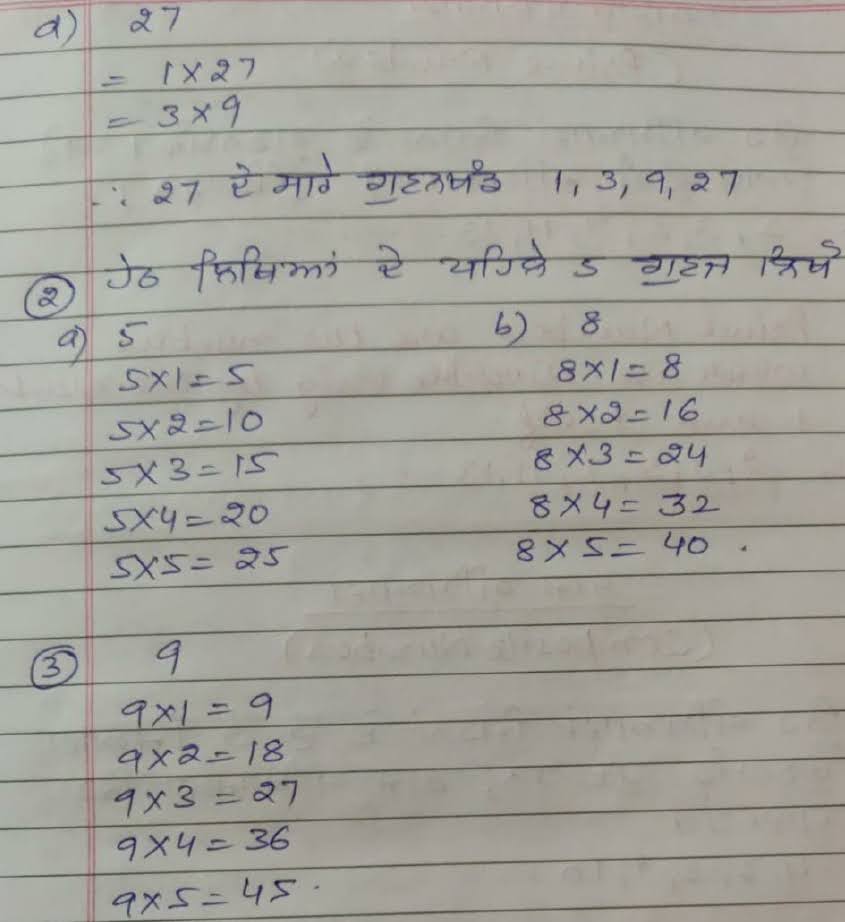 d) 27
= 1×27
= 3×9
∴ 27 ਦੇ ਸਾਰੇ ਗੁਣਨਖੰਡ 1, 3, 9, 27
② ਹੇਠ ਲਿਖਿਆਂ ਦੇ ਪਹਿਲੇ 5 ਗੁਣਜ ਲਿਖੋ
a) 5 b) 8
5×1=5 8×1=8
5×2=10 8×2=16
5×3=15 8×3=24
5×4=20 8×4=32
5×5=25 8×5=40.
③ 9
9×1=9
9×2=18
9×3=27
9×4=36
9×5=45.